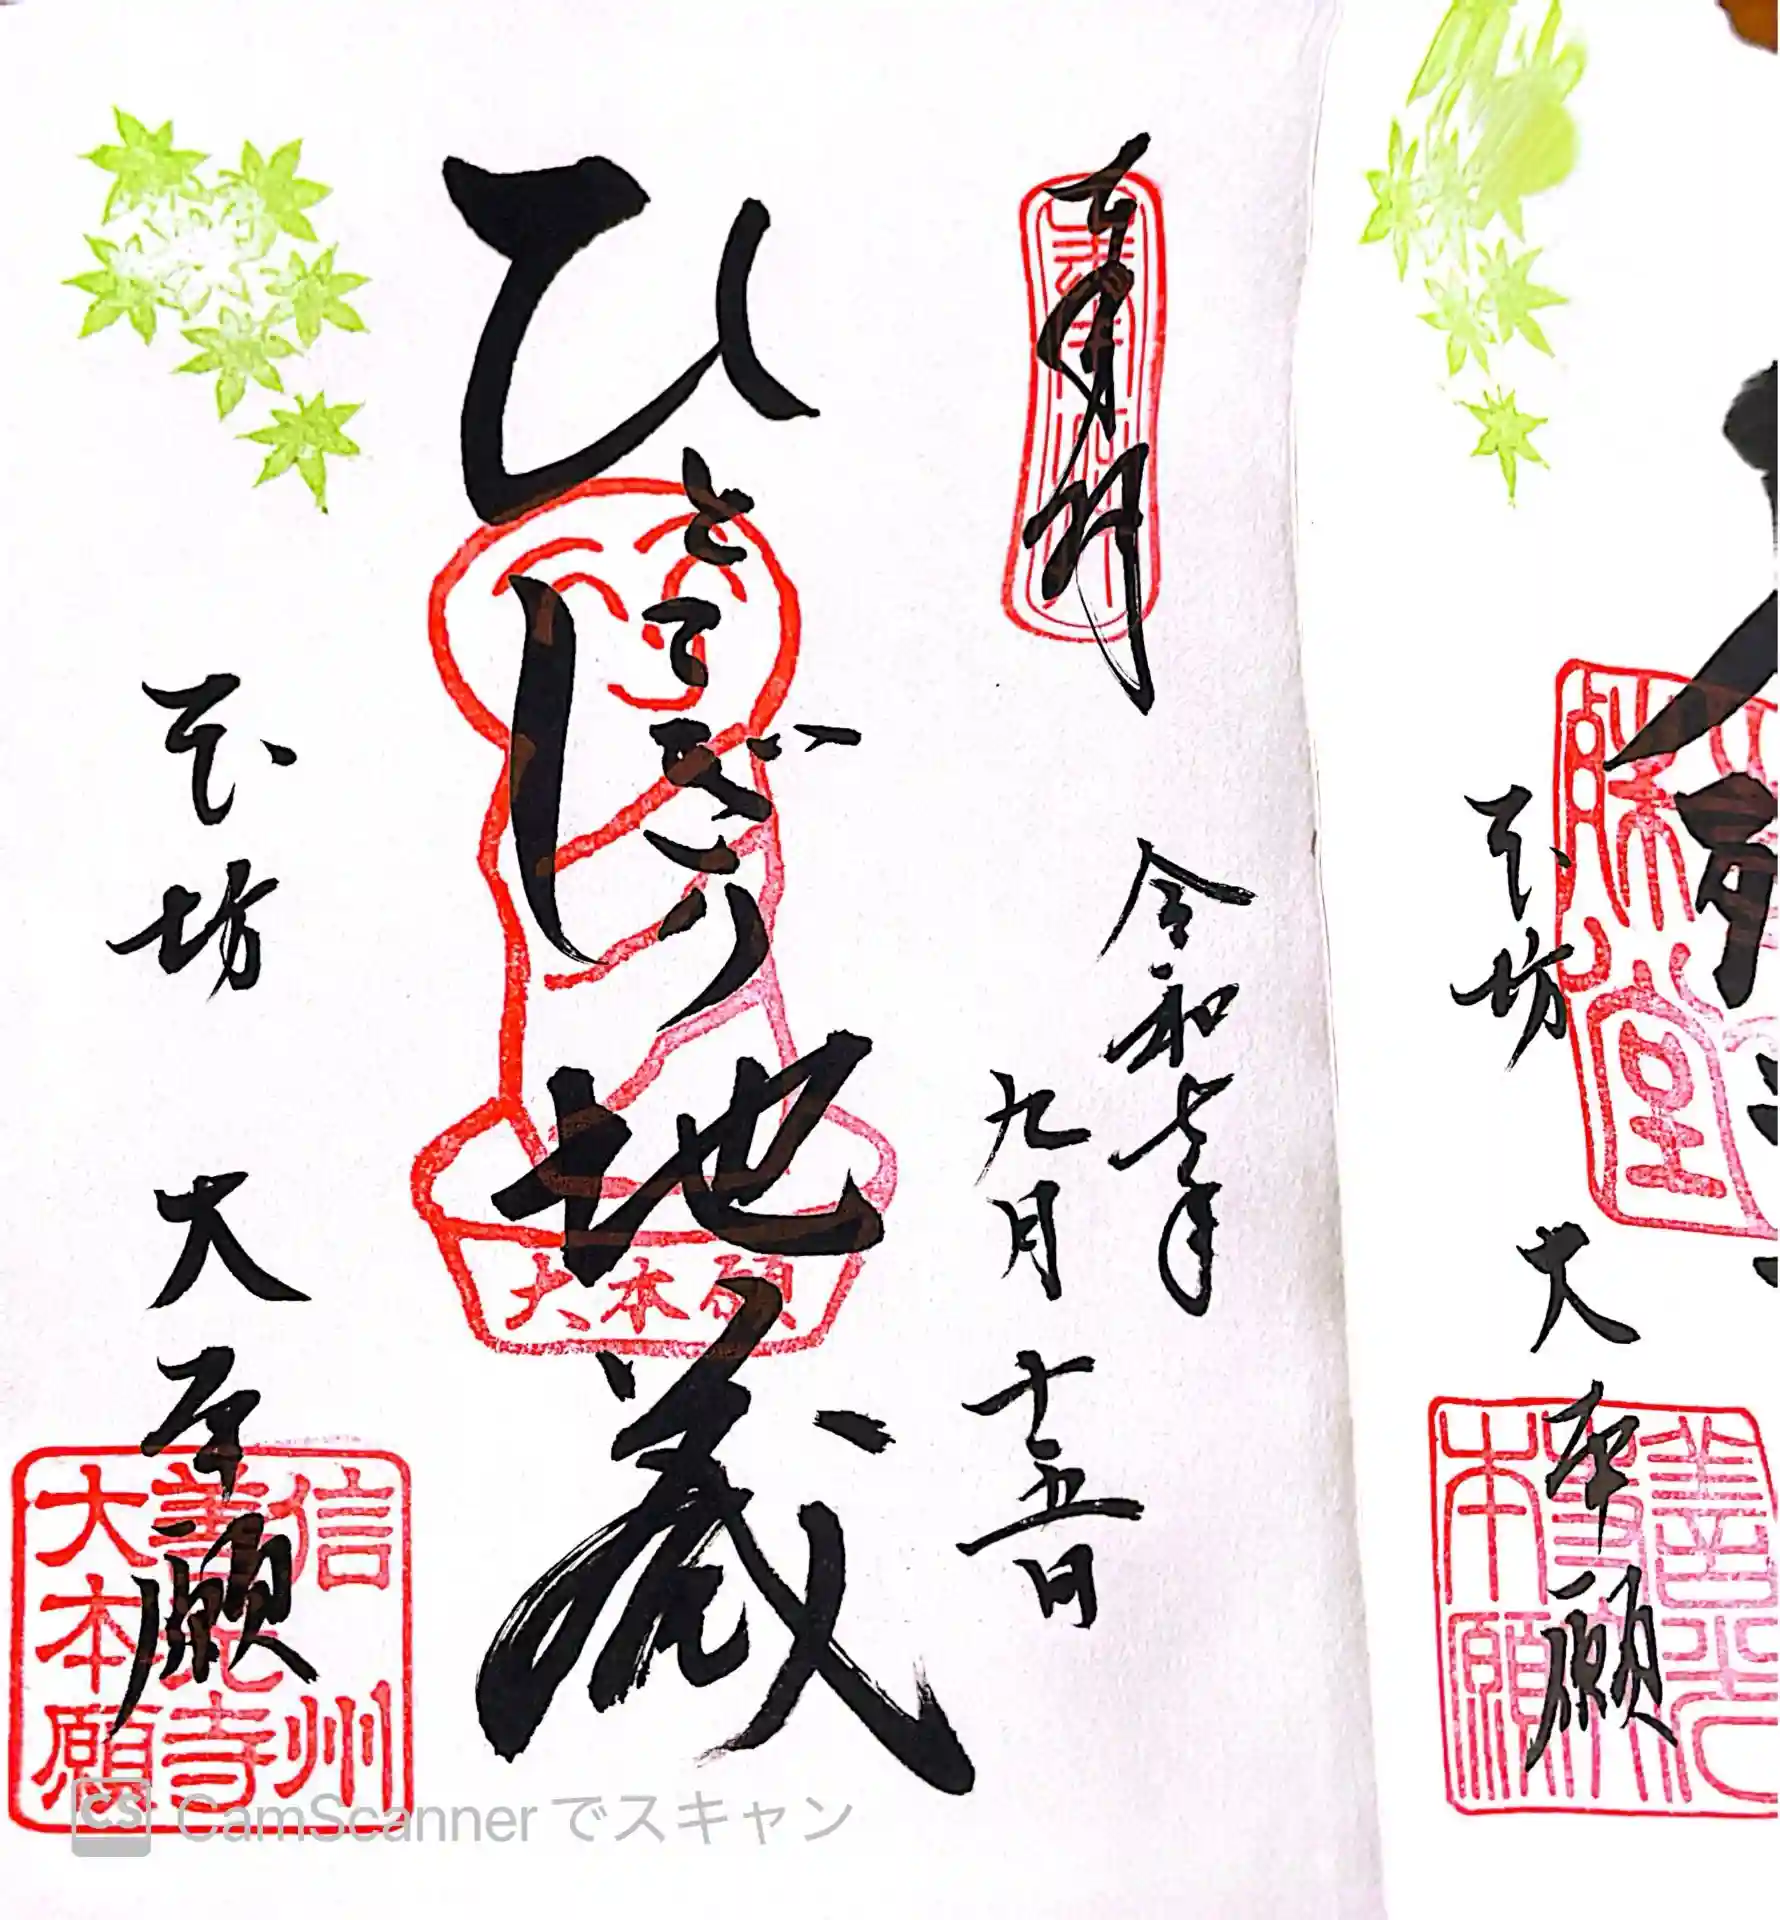 奉拝
令和七年
九月十五日
ひとにぎり地蔵
大本願
坊 大本願
信州
善光寺
大本願
坊 大本願
善光
本願
堂
CamScannerでスキャン